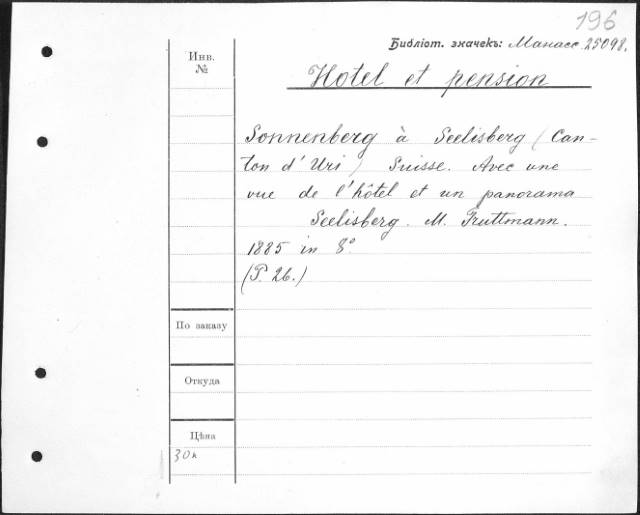 196
Библіот. значекъ: Манасс. 25098.
Инв.
№
Hotel et pension
Sonnenberg à Seelisberg (Can-
ton d'Uri) Suisse. Avec une
vue de l'hôtel et un panorama
Seelisberg. M. Truttmann.
1885 in 8°
(P. 26.)
По заказу
Откуда
Цѣна
30к